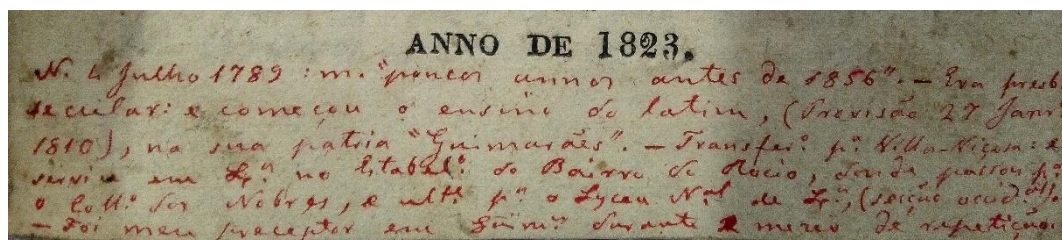 ANNO DE 1823.
N. 4 Julho 1789 : m. "poucos annos antes de 1856". — Era presb.
secular: e começou o ensino do latim, (Provisão 27 Janr
1810), na sua patria "Guimarães". — Transfer.º p.ª Villa-Viçosa: e
serviu em Lx.ª no Estabel.º do Bairro do Rocio, donde passou p.ª
o Coll.º dos Nobres, e ult.e p.ª o Lyceu N.al de Lx.ª, (secção occid.al).
— Foi meu preceptor em Guim.es durante o mereo de repetição